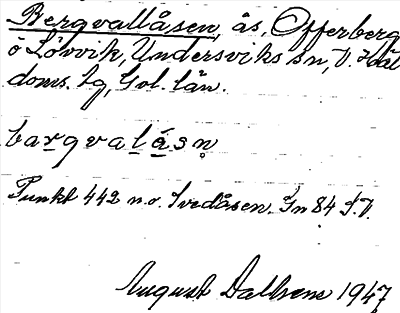 Bergvallåsen, ås, Offerberg
ö Lövvik, Undersviks sn, V. Häl
doms. lg, Gvl. län.
bargvalåsn
Punkt 442 n.o. Svedåsen. Gn 84 S.V.
August Dallhems 1947